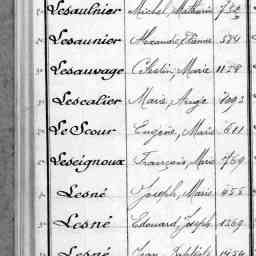 Lesaulnier Michel, Mathurin
Lesaunier Alexandre, Etienne 584
Lesauvage Célestin, Marie 1158
Lescalier Marie, Ange 1093
Le Scour Eugène, Marie 611
Leseignoux François, Marie 769
Lesné Joseph, Marie 455
Lesné Edouard, Joseph 1369
Lesné Jean Baptiste 1454